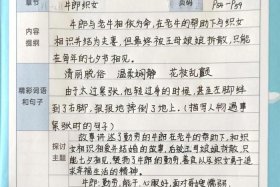 章节 牛郎织女 P34-P39
牛郎与老牛相依为命，在老牛的帮助下与织女
内容 相识并结为夫妻，但最终被王母娘娘拆散，只能
提纲 在每年的七夕相见。
清丽脱俗 温柔娴静 花枝乱颤
精彩词语 由于太过紧张，他转过身的时候，甚至左脚绊
和句子 到了右脚，狠狠地摔倒了地上。（描写人物遇事
紧张时的句子）
故事讲述了勤劳的牛郎在老牛的帮助下，和织
探讨 女相识相爱并结婚的故事，后被王母娘娘拆散，只
主题 能七夕相见，赞颂了牛郎的勤劳、善良以及织女勇于追
求幸福生活的精神。
牛郎：勤劳、能干、心眼好，面对哥嫂懦弱